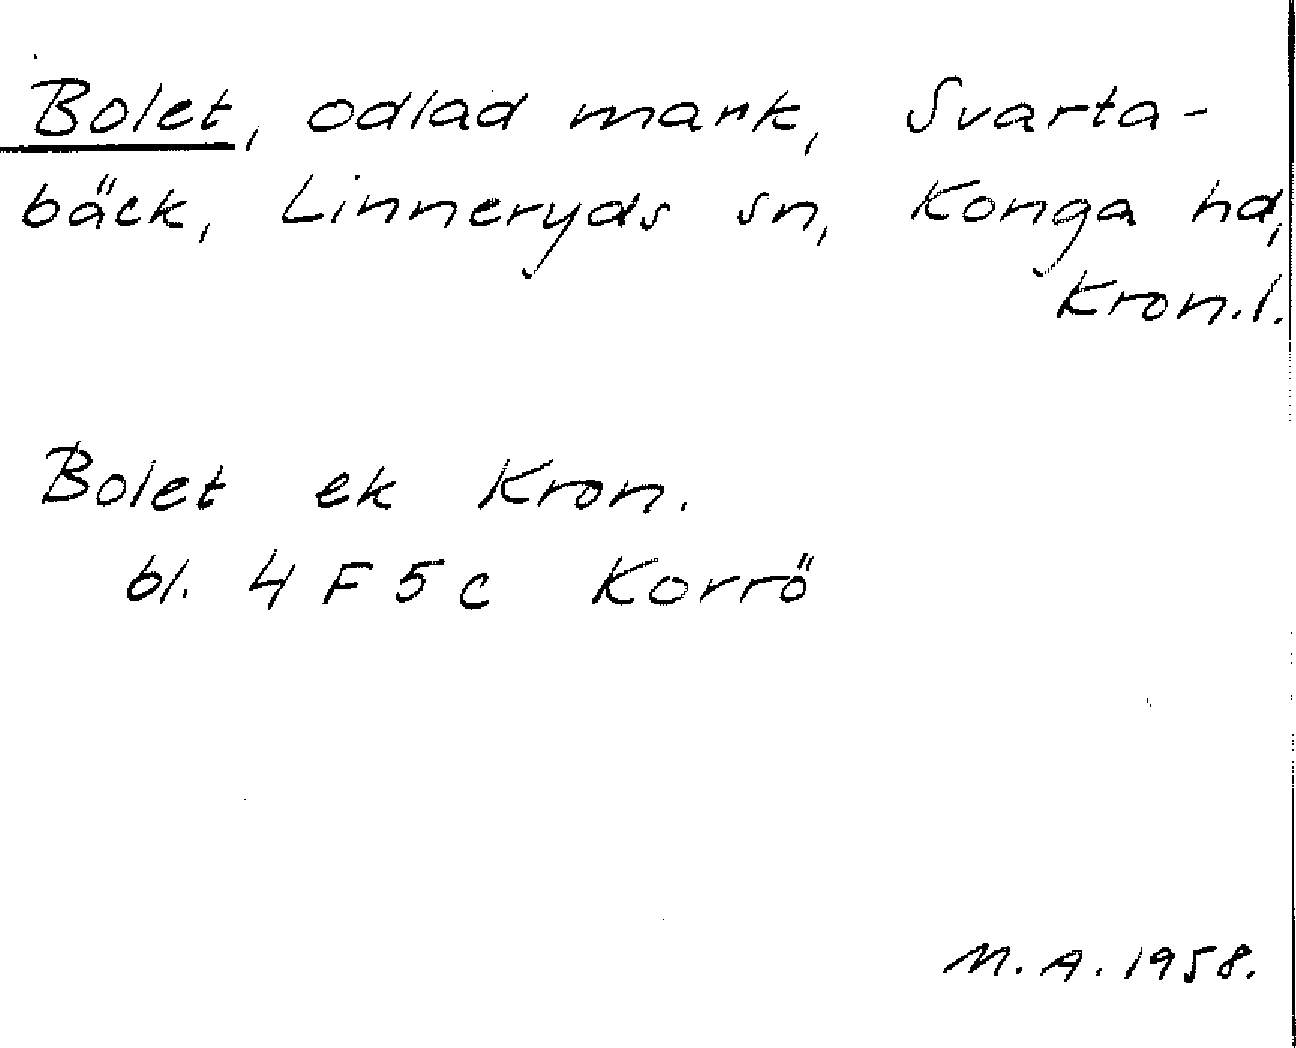 Bolet, odlad mark, Svarta-
bäck, Linneryds sn, Konga hd,
Kron.l.
Bolet ek Kron.
bl. 4 F 5 c Korrö
M. A. 1958.